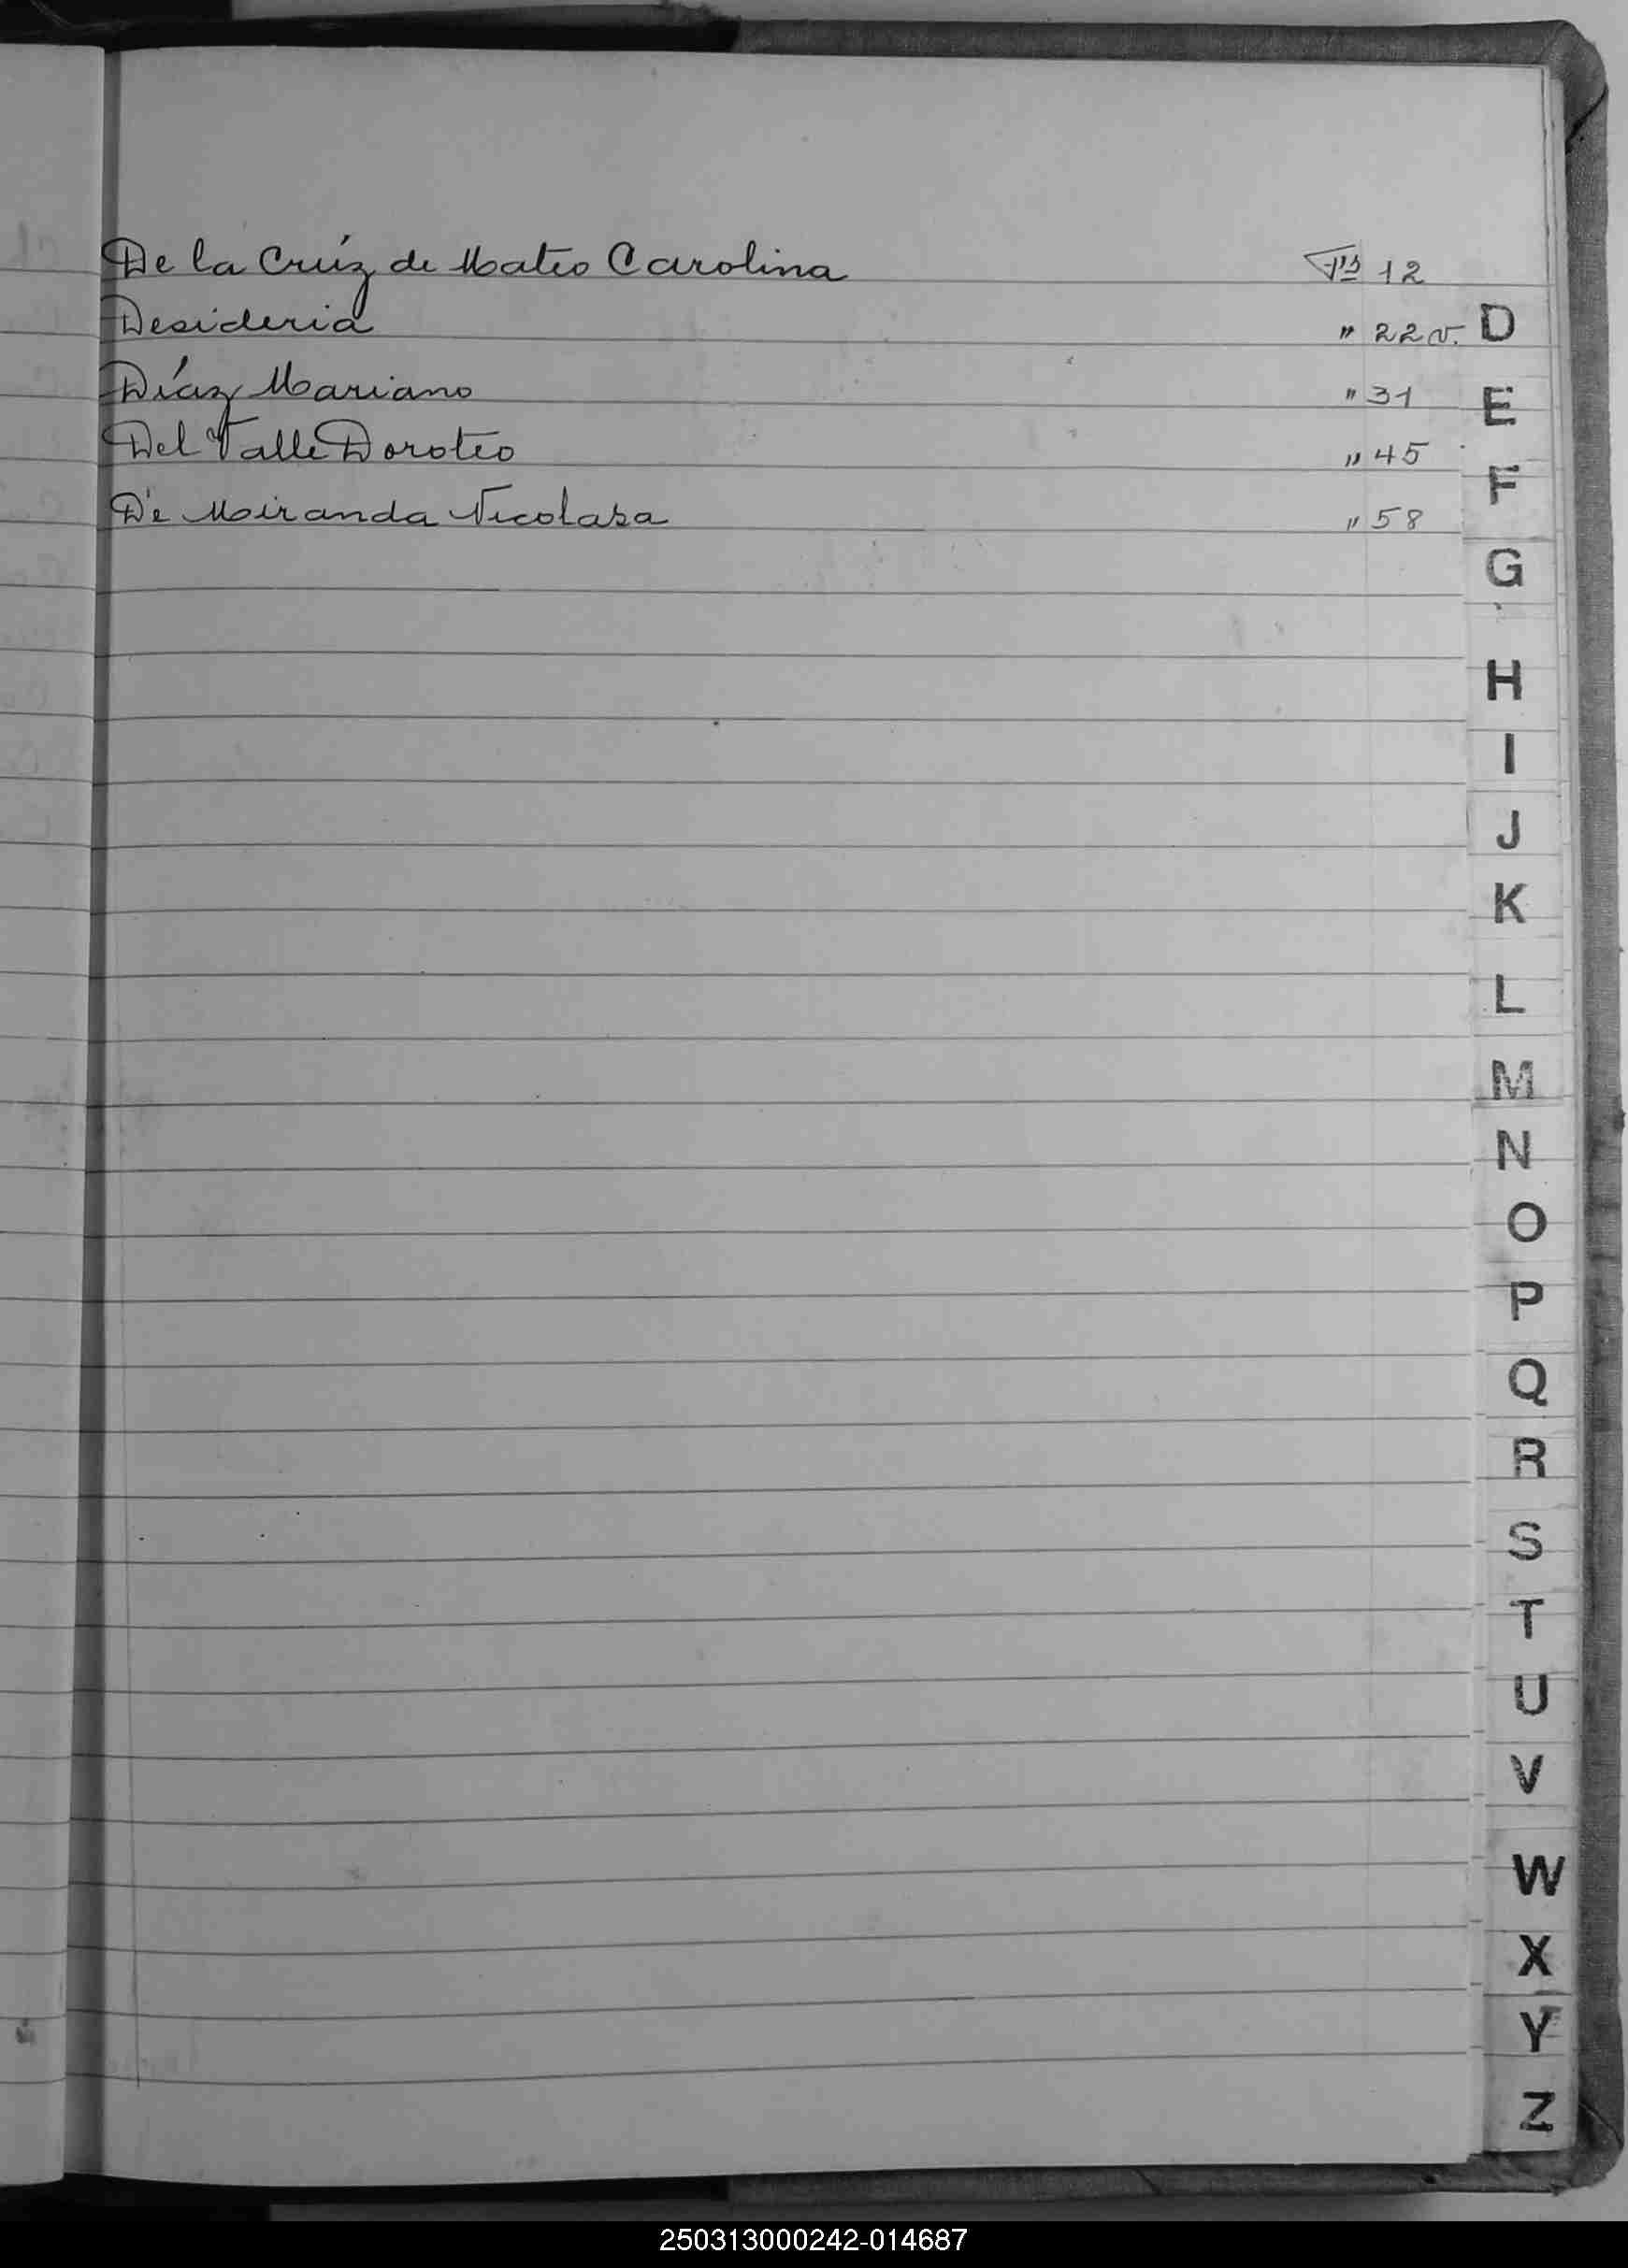 De la Crúz de Mateo Carolina Fs 12
Desideria " 22 v.
Díaz Mariano " 31
Del Valle Doroteo " 45
De Miranda Nicolasa " 58
D
E
F
G
H
I
J
K
L
M
N
O
P
Q
R
S
T
U
V
W
X
Y
Z
250313000242-014687